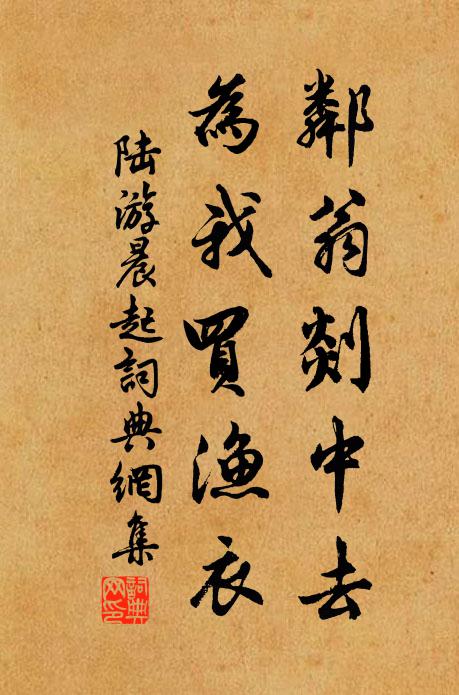 鄰翁剡中去
為我買漁衣
陸游晨起詞典網集
詞典
网印